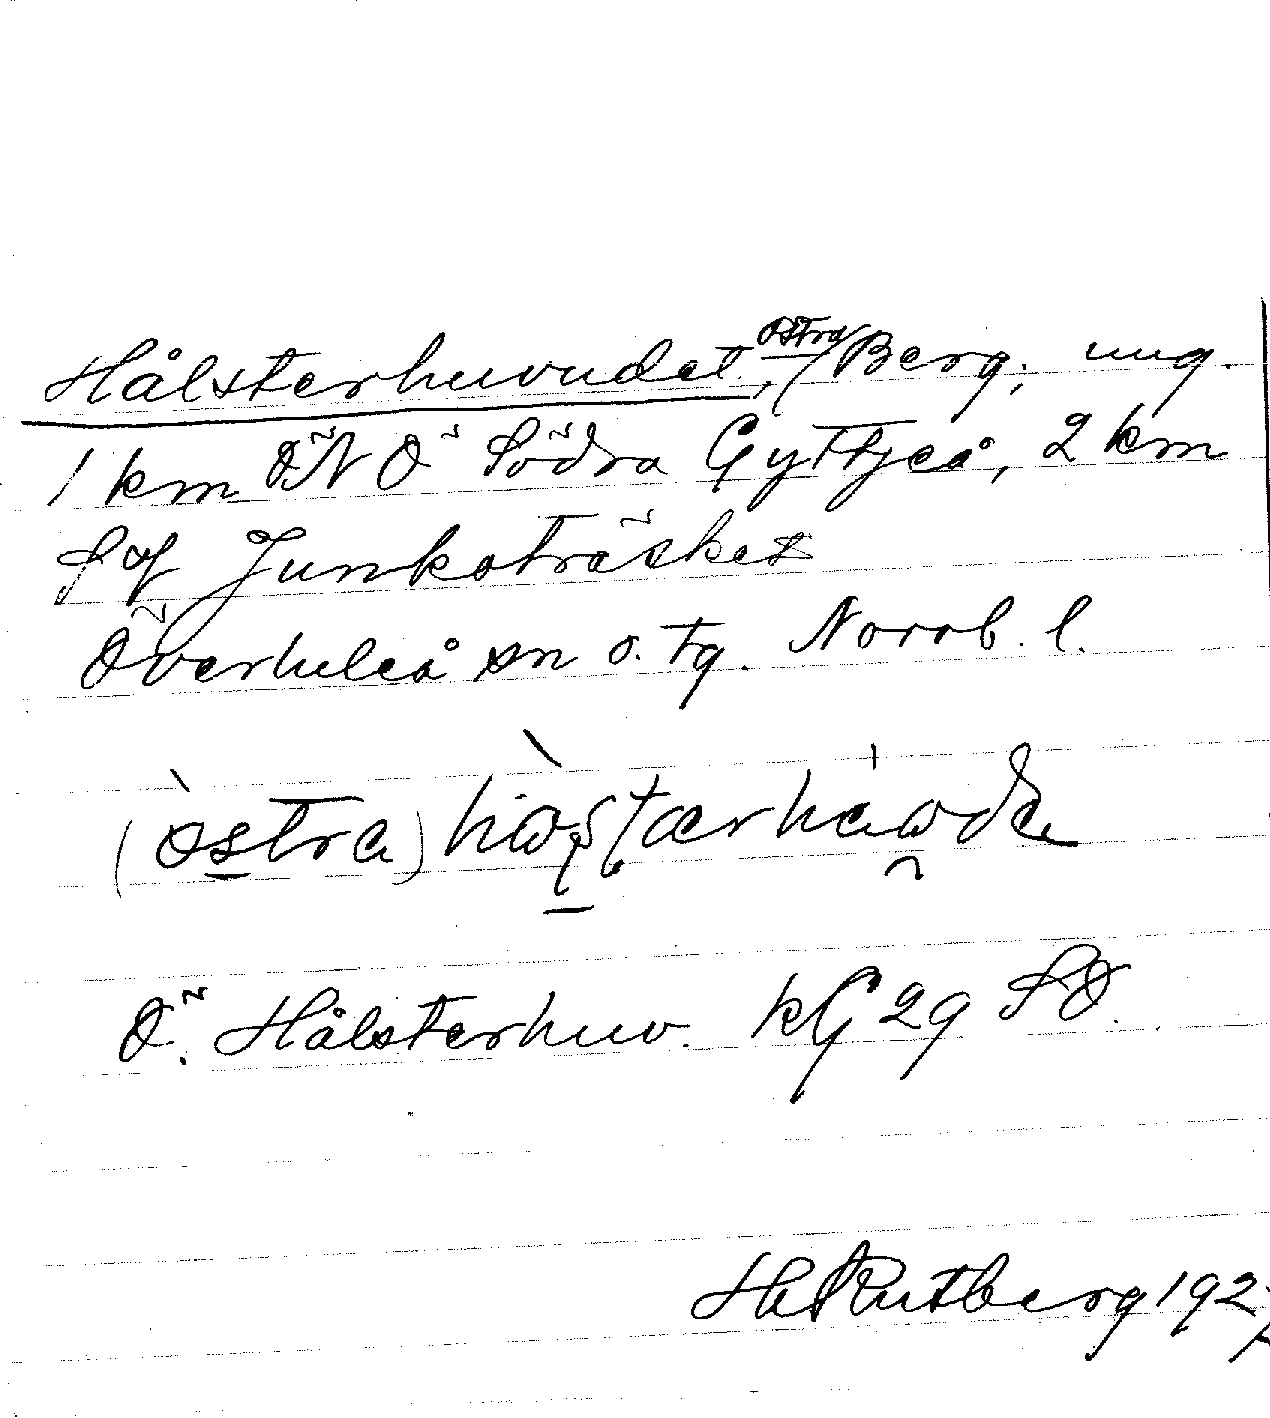 Hålsterhuvudet, östra / Berg; ung.
1 km ÖNÖ Södra Gyttjeå, 2 km
S of Junkoträsket
Överluleå sn o. tg. Norrb. l.
(östra)
Ö. Hålsterhuv. kG 29 SÖ.
H Rutberg 192